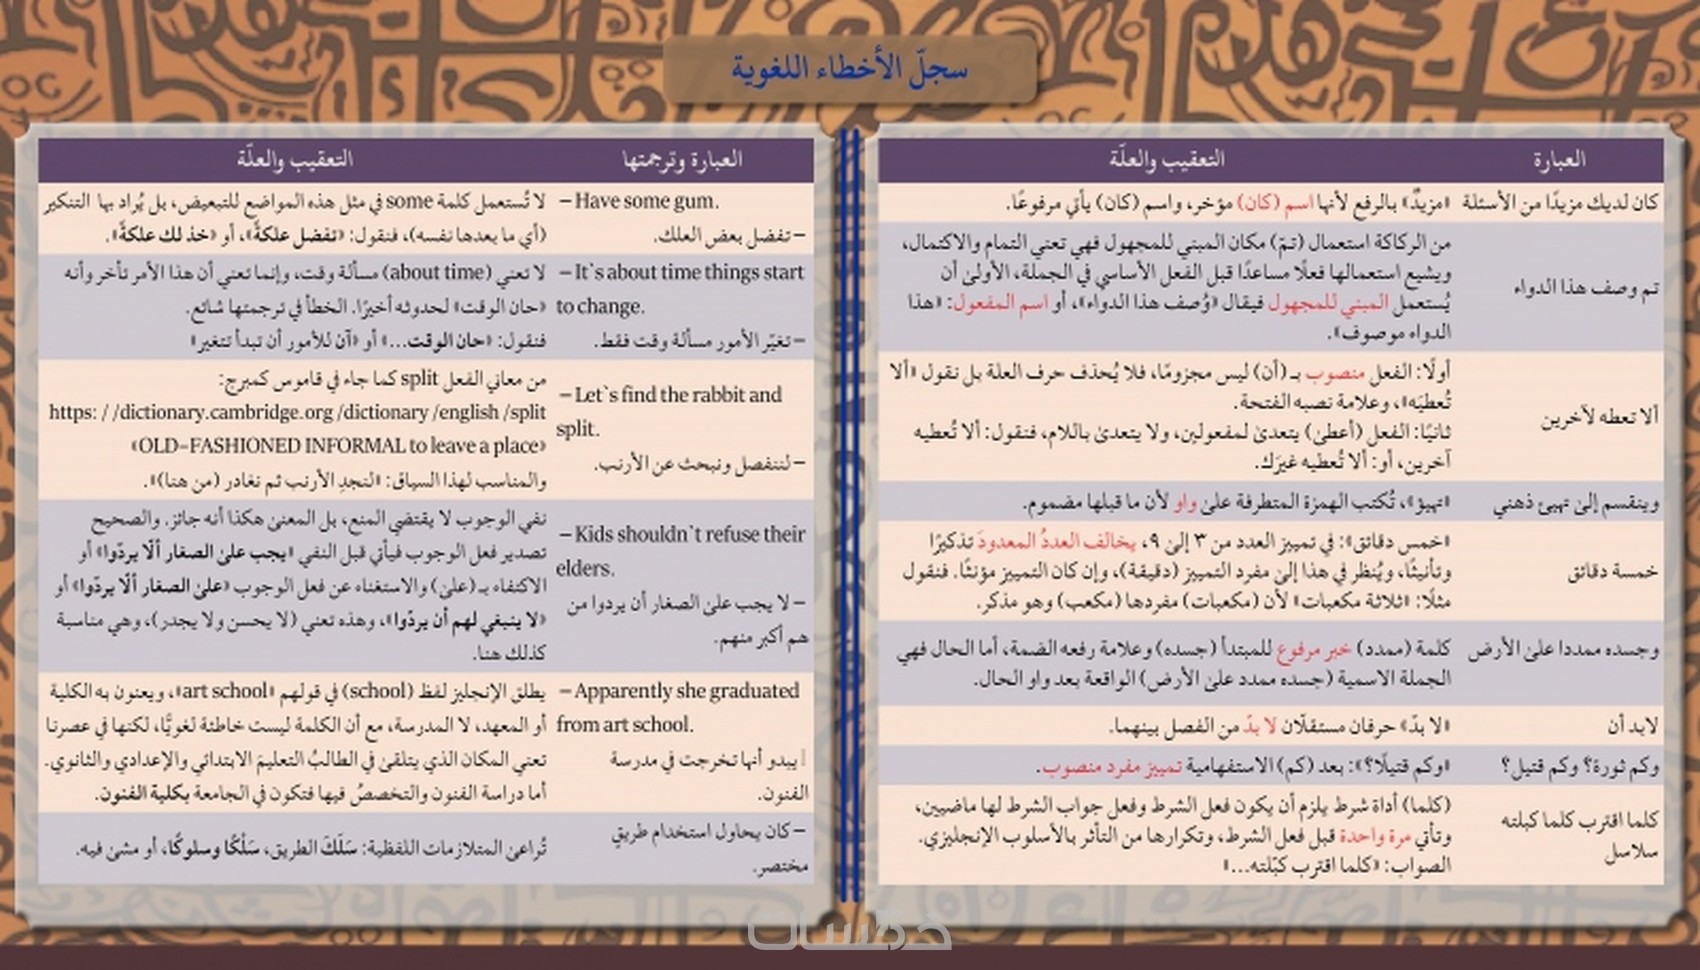 سجلّ الأخطاء اللغوية
العبارة
التعقيب والعلّة
كان لديك مزيدًا من الأسئلة
«مزيدٌ» بالرفع لأنها اسم (كان) مؤخر، واسم (كان) يأتي مرفوعًا.
تم وصف هذا الدواء
من الركاكة استعمال (تمّ) مكان المبني للمجهول فهي تعني التمام والاكتمال،
ويشيع استعمالها فعلًا مساعدًا قبل الفعل الأساسي في الجملة، الأولىٰ أن
يُستعمل المبني للمجهول فيقال «وُصف هذا الدواء»، أو اسم المفعول: «هذا
الدواء موصوف».
ألا تعطه لآخرين
أولًا: الفعل منصوب بـ(أن) ليس مجزومًا، فلا يُحذف حرف العلة بل نقول «ألا
تُعطيَه»، وعلامة نصبه الفتحة.
ثانيًا: الفعل (أعطىٰ) يتعدىٰ لمفعولين، ولا يتعدىٰ باللام، فنقول: ألا تُعطيه
آخرين، أو: ألا تُعطيه غيرَك.
وينقسم إلىٰ تهيئ ذهني
«تهيؤ»، تُكتب الهمزة المتطرفة علىٰ واو لأن ما قبلها مضموم.
خمسة دقائق
«خمس دقائق»: في تمييز العدد من ٣ إلىٰ ٩، يخالف العددُ المعدودَ تذكيرًا
وتأنيثًا، ويُنظر في هذا إلىٰ مفرد التمييز (دقيقة)، وإن كان التمييز مؤنثًا. فنقول
مثلًا: «ثلاثة مكعبات» لأن (مكعبات) مفردها (مكعب) وهو مذكر.
وجسده ممددا علىٰ الأرض
كلمة (ممدد) خبر مرفوع للمبتدأ (جسده) وعلامة رفعه الضمة، أما الحال فهي
الجملة الاسمية (جسده ممدد علىٰ الأرض) الواقعة بعد واو الحال.
لابد أن
«لا بدّ» حرفان مستقلّان لا بدّ من الفصل بينهما.
وكم ثورة؟ وكم قتيل؟
«وكم قتيلًا؟»: بعد (كم) الاستفهامية تمييز مفرد منصوب.
كلما اقترب كلما كبلته
سلاسل
(كلما) أداة شرط يلزم أن يكون فعل الشرط وفعل جواب الشرط لها ماضيين،
وتأتي مرة واحدة قبل فعل الشرط، وتكرارها من التأثر بالأسلوب الإنجليزي.
الصواب: «كلما اقترب كبّلته...»
العبارة وترجمتها
التعقيب والعلّة
– Have some gum.
– تفضل بعض العلك.
لا تُستعمل كلمة some في مثل هذه المواضع للتبعيض، بل يُراد بها التنكير
(أي ما بعدها نفسه)، فنقول: «تفضل علكةً»، أو «خذ لك علكةً».
– It`s about time things start
to change.
– تغيّر الأمور مسألة وقت فقط.
لا تعني (about time) مسألة وقت، وإنما تعني أن هذا الأمر تأخر وأنه
«حان الوقت» لحدوثه أخيرًا. الخطأ في ترجمتها شائع.
فنقول: «حان الوقت...» أو «آن للأمور أن تبدأ تتغير»
– Let`s find the rabbit and
split.
– لننفصل ونبحث عن الأرنب.
من معاني الفعل split كما جاء في قاموس كمبرج:
https: //dictionary.cambridge.org /dictionary /english /split
«OLD-FASHIONED INFORMAL to leave a place»
والمناسب لهذا السياق: «لنجدِ الأرنب ثم نغادر (من هنا)».
– Kids shouldn`t refuse their
elders.
– لا يجب علىٰ الصغار أن يردوا من
هم أكبر منهم.
نفي الوجوب لا يقتضي المنع، بل المعنىٰ هكذا أنه جائز. والصحيح
تصدير فعل الوجوب فيأتي قبل النفي «يجب علىٰ الصغار ألّا يردّوا» أو
الاكتفاء بـ(علىٰ) والاستغناء عن فعل الوجوب «علىٰ الصغار ألّا يردّوا» أو
«لا ينبغي لهم أن يردّوا»، وهذه تعني (لا يحسن ولا يجدر)، وهي مناسبة
كذلك هنا.
– Apparently she graduated
from art school.
يبدو أنها تخرجت في مدرسة
الفنون.
يطلق الإنجليز لفظ (school) في قولهم «art school»، ويعنون به الكلية
أو المعهد، لا المدرسة، مع أن الكلمة ليست خاطئة لغويًّا، لكنها في عصرنا
تعني المكان الذي يتلقىٰ في الطالبُ التعليمَ الابتدائي والإعدادي والثانوي.
أما دراسة الفنون والتخصصُ فيها فتكون في الجامعة بكلية الفنون.
– كان يحاول استخدام طريقٍ
مختصر.
تُراعىٰ المتلازمات اللفظية: سَلَكَ الطريق، سَلْكًا وسلوكًا، أو مشىٰ فيه.
خمسات